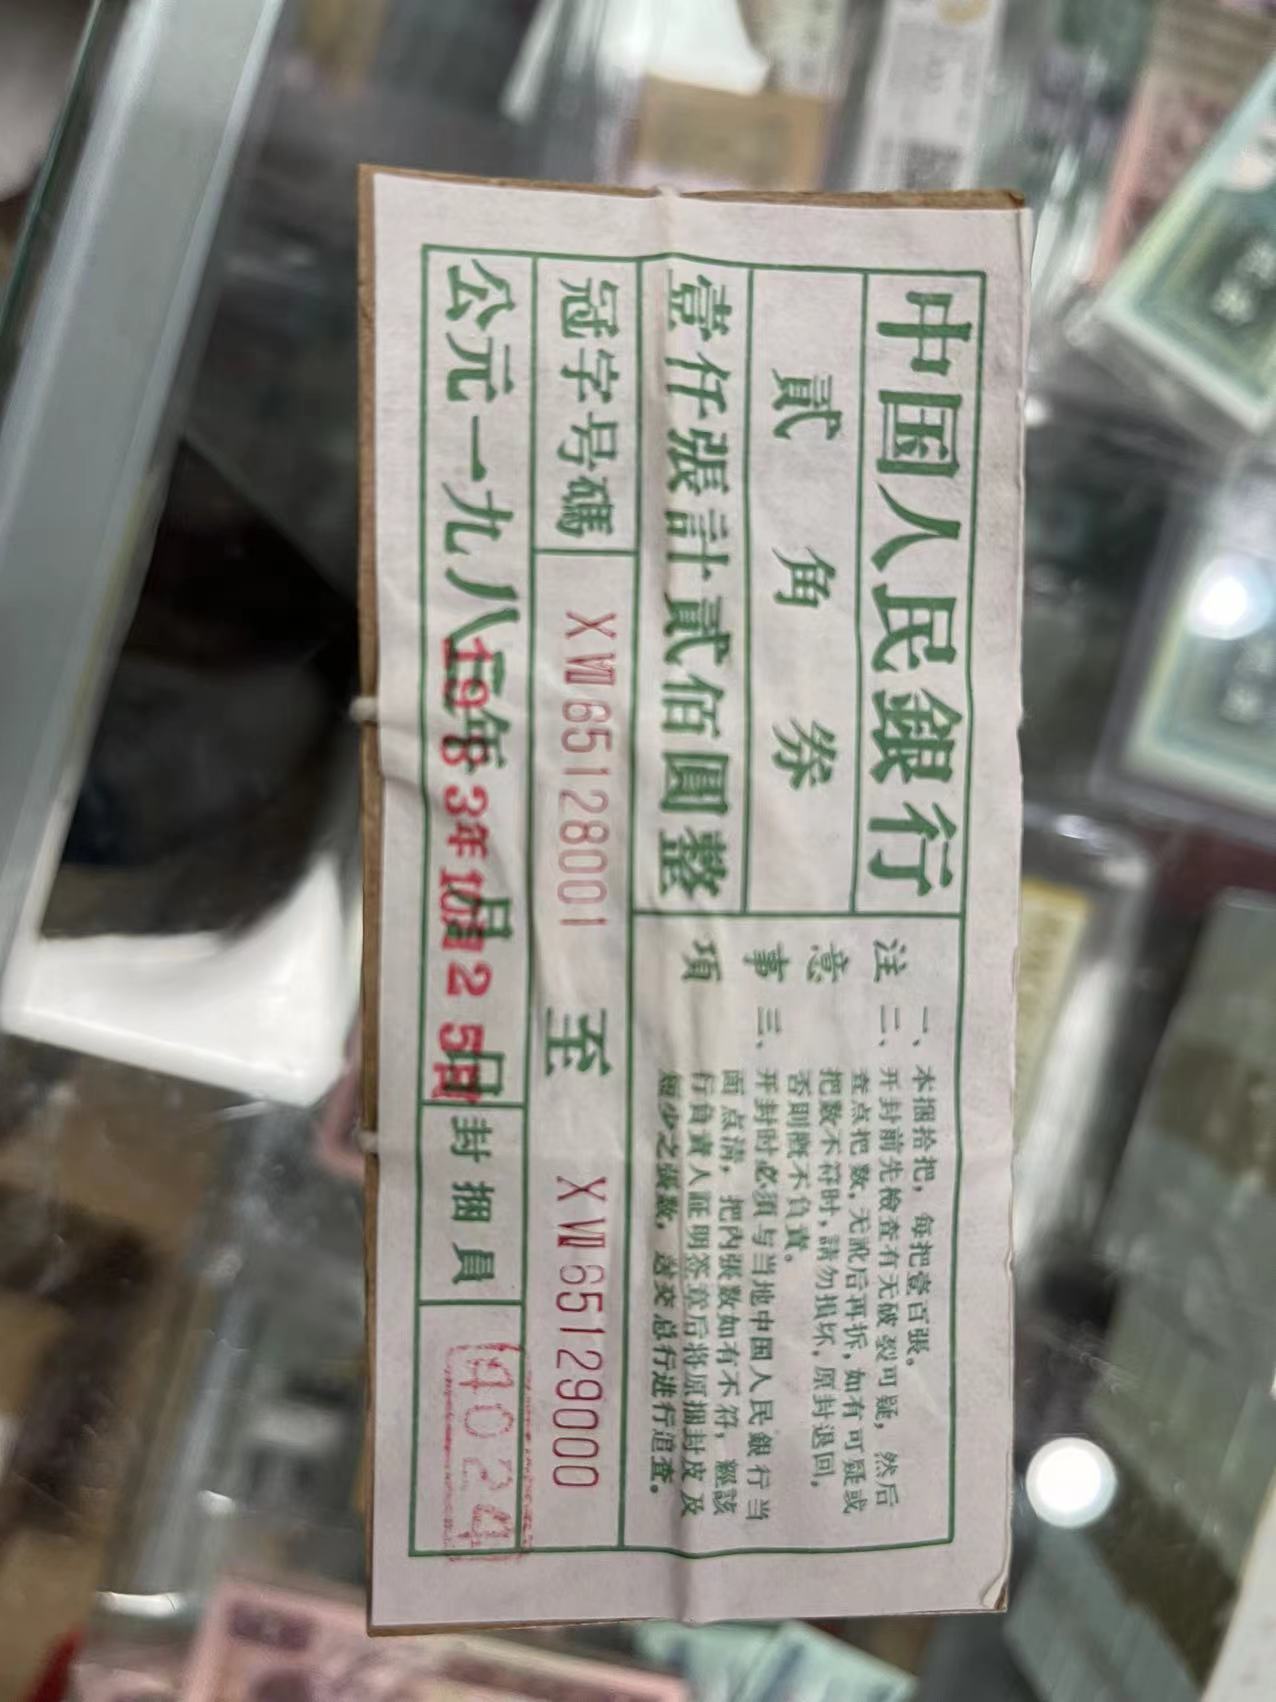 中国人民銀行
貳角券
壹仟張計貳佰圓整
注意事項
一、本捆拾把，每把壹百張。
二、开封前先檢查有无破裂可疑，然后
查点把数，无訛后再拆，如有可疑或
把数不符时，請勿損坏，原封退回，
否則概不负責。
三、开封时必須与当地中国人民銀行当
面点清，把內張数如有不符，經該
行負責人証明签章后将原捆封皮及
短少之張数，送交总行进行追查。
冠字号碼
XⅦ65128001 至 XⅦ65129000
公元一九八 年 月 日
1983年10月25日
封捆員
4024